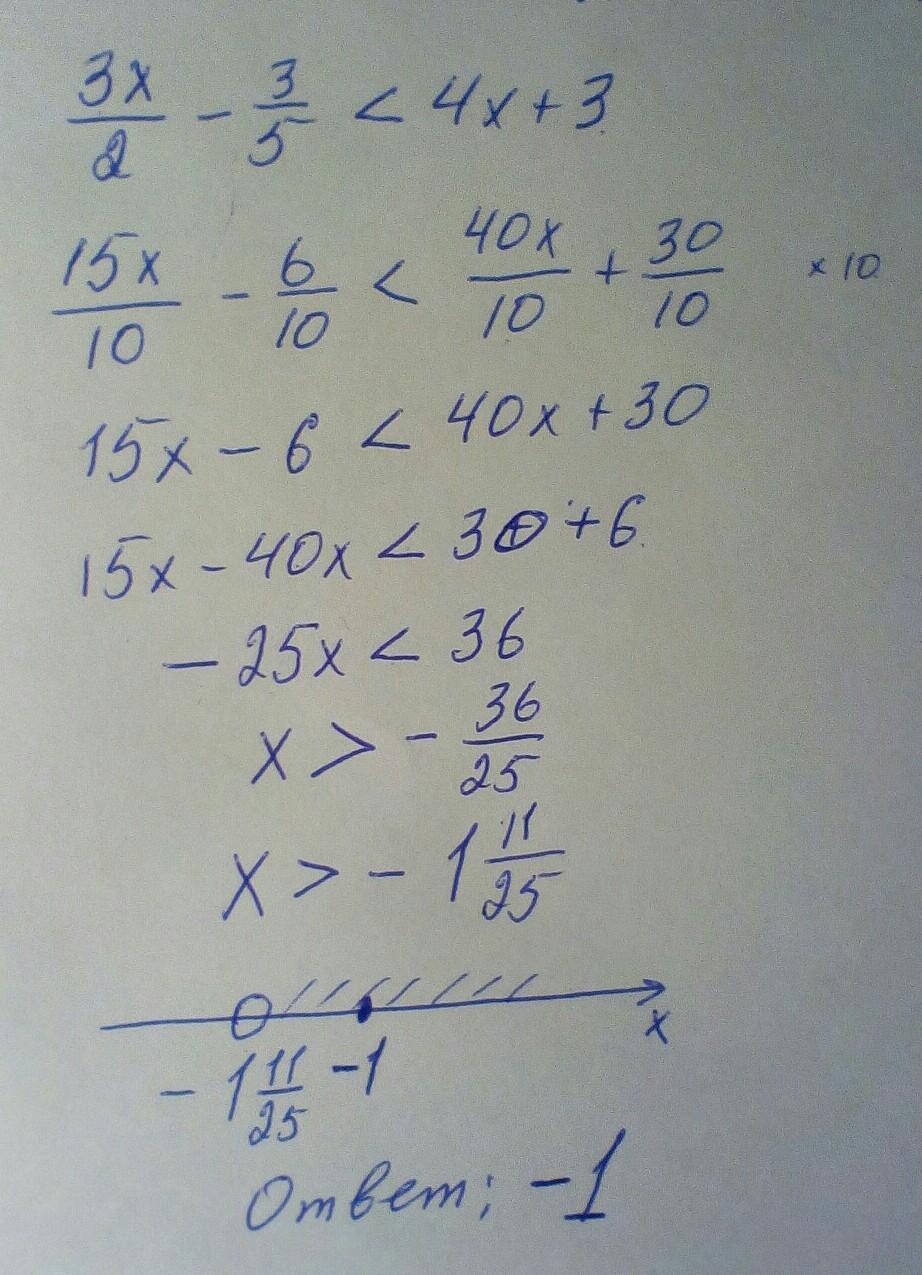 3x/2 - 3/5 < 4x + 3
15x/10 - 6/10 < 40x/10 + 30/10 × 10
15x - 6 < 40x + 30
15x - 40x < 30 + 6
- 25x < 36
x > - 36/25
x > - 1 11/25
x
- 1 11/25 -1
Ответ: -1